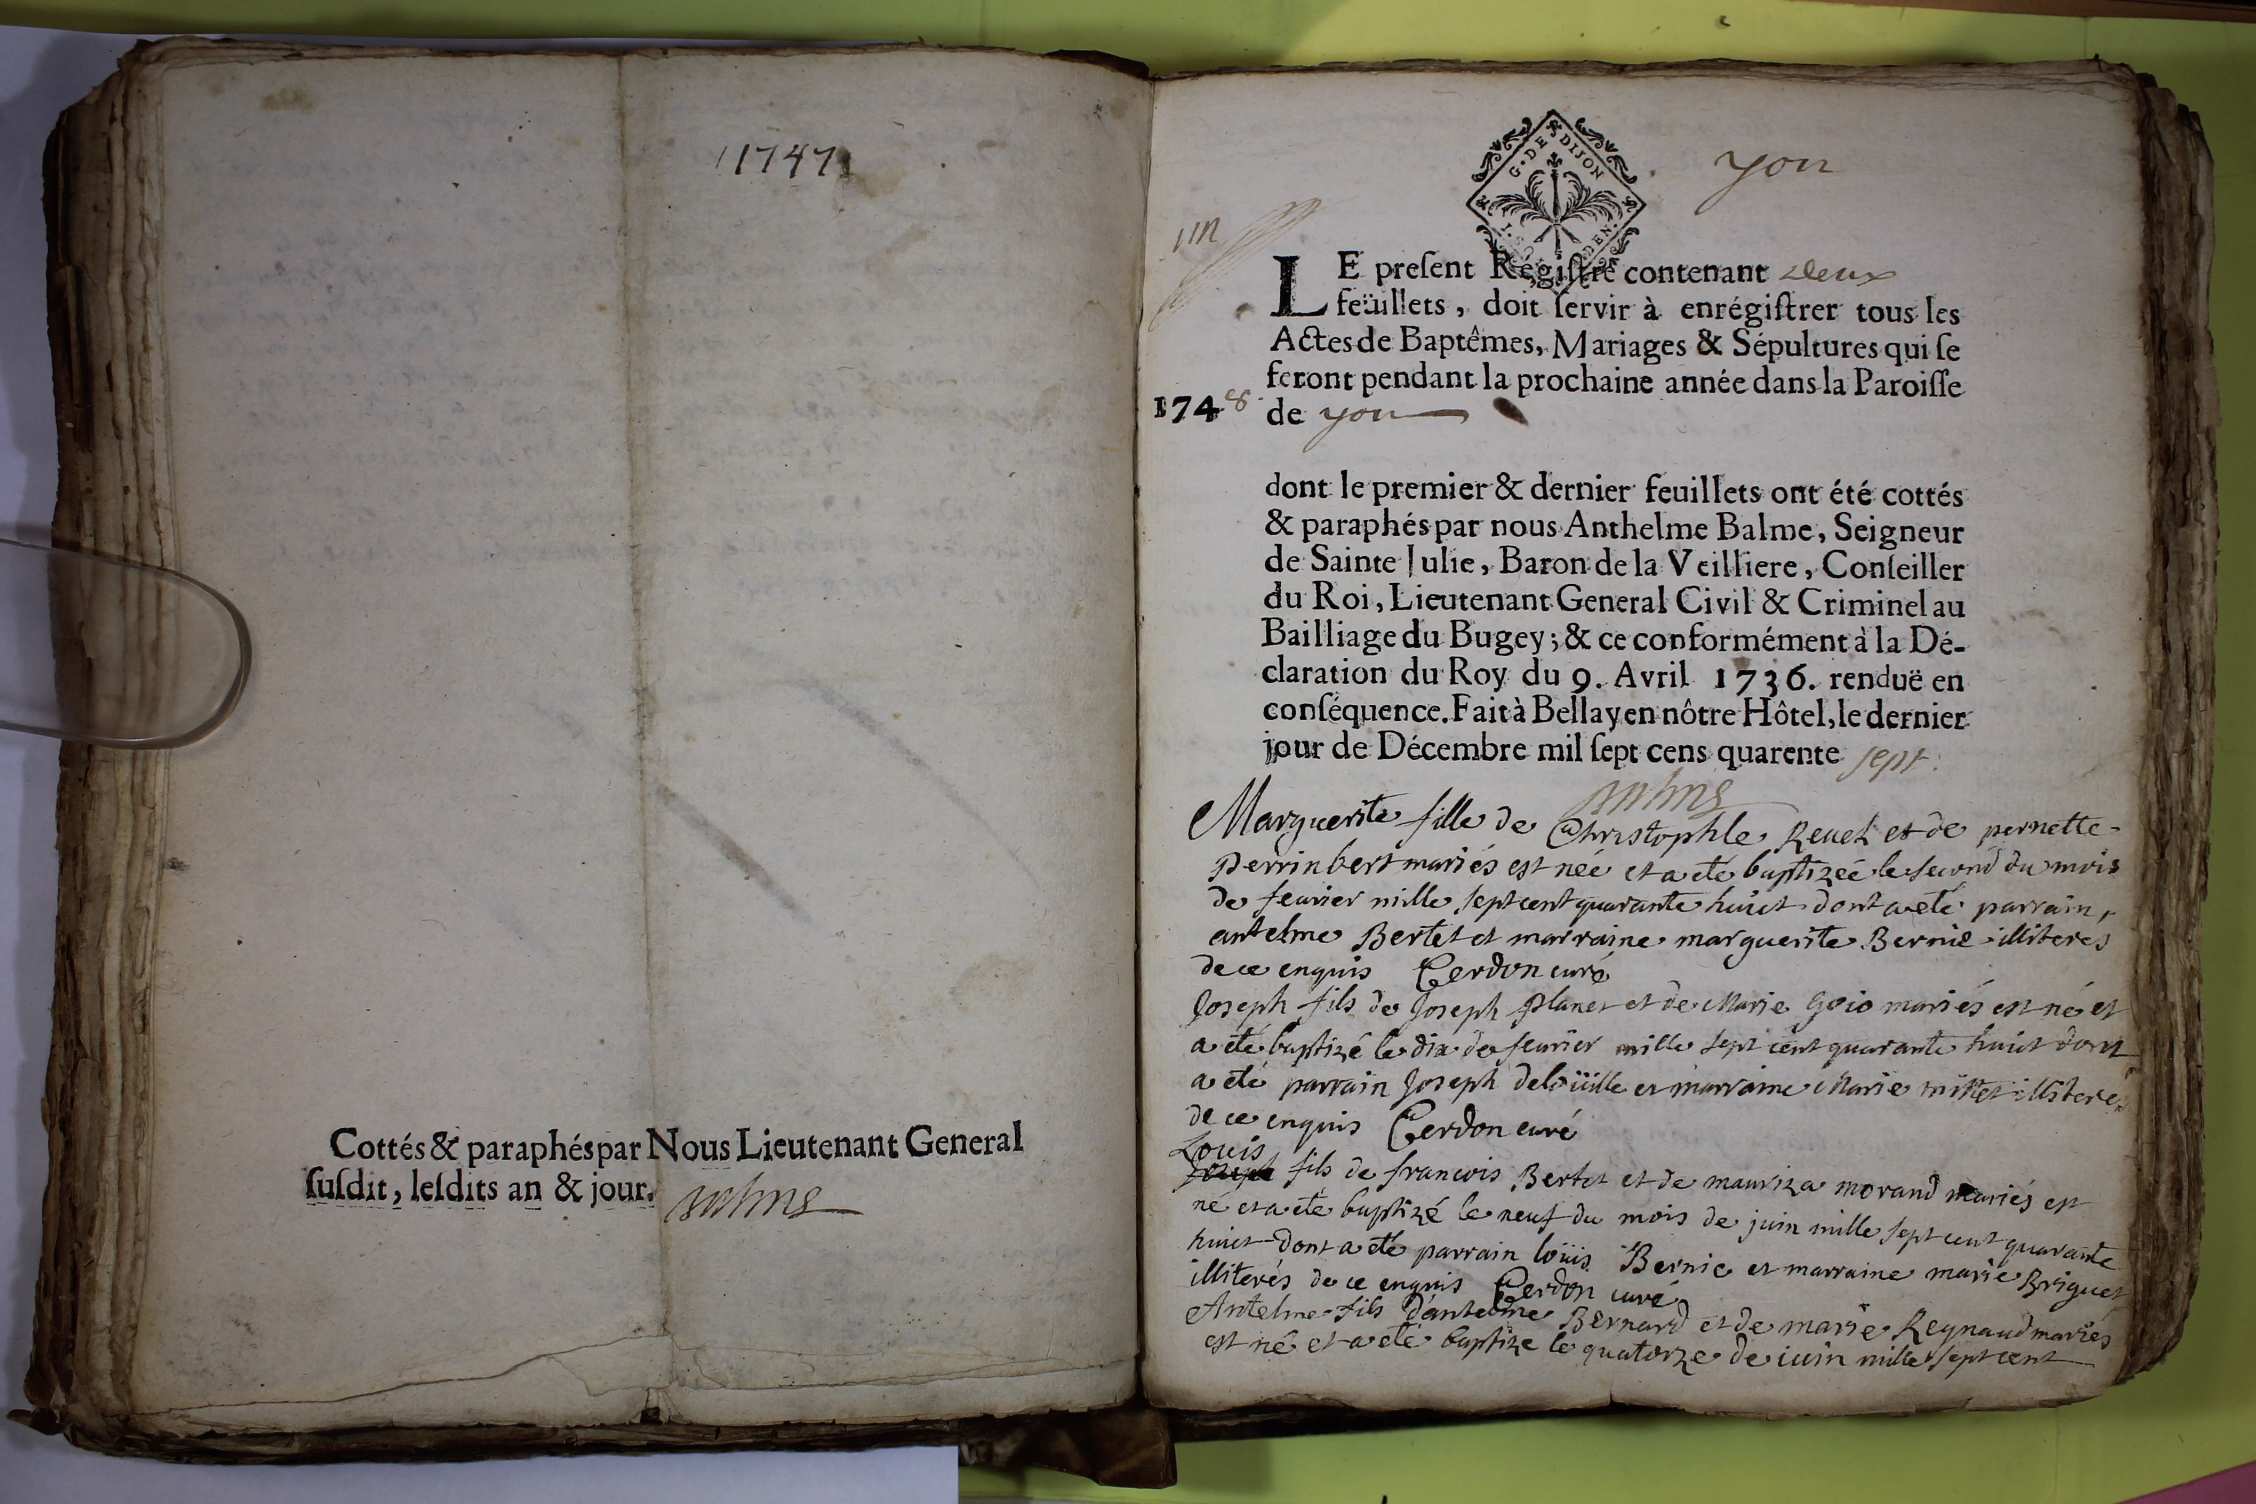 1747
Cottés & paraphés par Nous Lieutenant General
ſuſdit, leſdits an & jour.
G. DE DIJON
yon
un
LE preſent Régiſtre contenant deux
feüillets, doit ſervir à enrégiſtrer tous les
Actes de Baptêmes, Mariages & Sépultures qui ſe
feront pendant la prochaine année dans la Paroiſſe
1748 de yon
dont le premier & dernier feuillets ont été cottés
& paraphés par nous Anthelme Balme, Seigneur
de Sainte Julie, Baron de la Veilliere, Conſeiller
du Roi, Lieutenant General Civil & Criminel au
Bailliage du Bugey; & ce conformément à la Dé-
claration du Roy du 9. Avril 1736. renduë en
conſéquence. Fait à Bellay en nôtre Hôtel, le dernier
jour de Décembre mil ſept cens quarente sept.
Marguerite fille de Christophle Reuel et de pernette
Perrin bert mariés est née et a eté baptizeé le second du mois
de feurier mille sept cent quarante huict dont a eté parrain,
antelme Bertet et marraine marguerite Bernie illiteres
de ce enquis Cerdon curé
Joseph fils de Joseph planet et de Marie goio mariés est né et
a eté baptizé le dix de feurier mille sept cent quarante huict dont
a eté parrain Joseph deloüille et marraine Marie millet illiterés
de ce enquis Cerdon curé
Louis
Joseph fils de francois Bertet et de mauriza morand mariés est
né et a eté baptizé le neuf du mois de juin mille sept cent quarante
huict dont a eté parrain loüis Bernie et marraine marie Briguet
illiterés de ce enquis Cerdon curé
Antelme fils d'antelme Bernard et de marie Reynaud mariés
est né et a eté baptize le quatorze de iuin mille sept cent